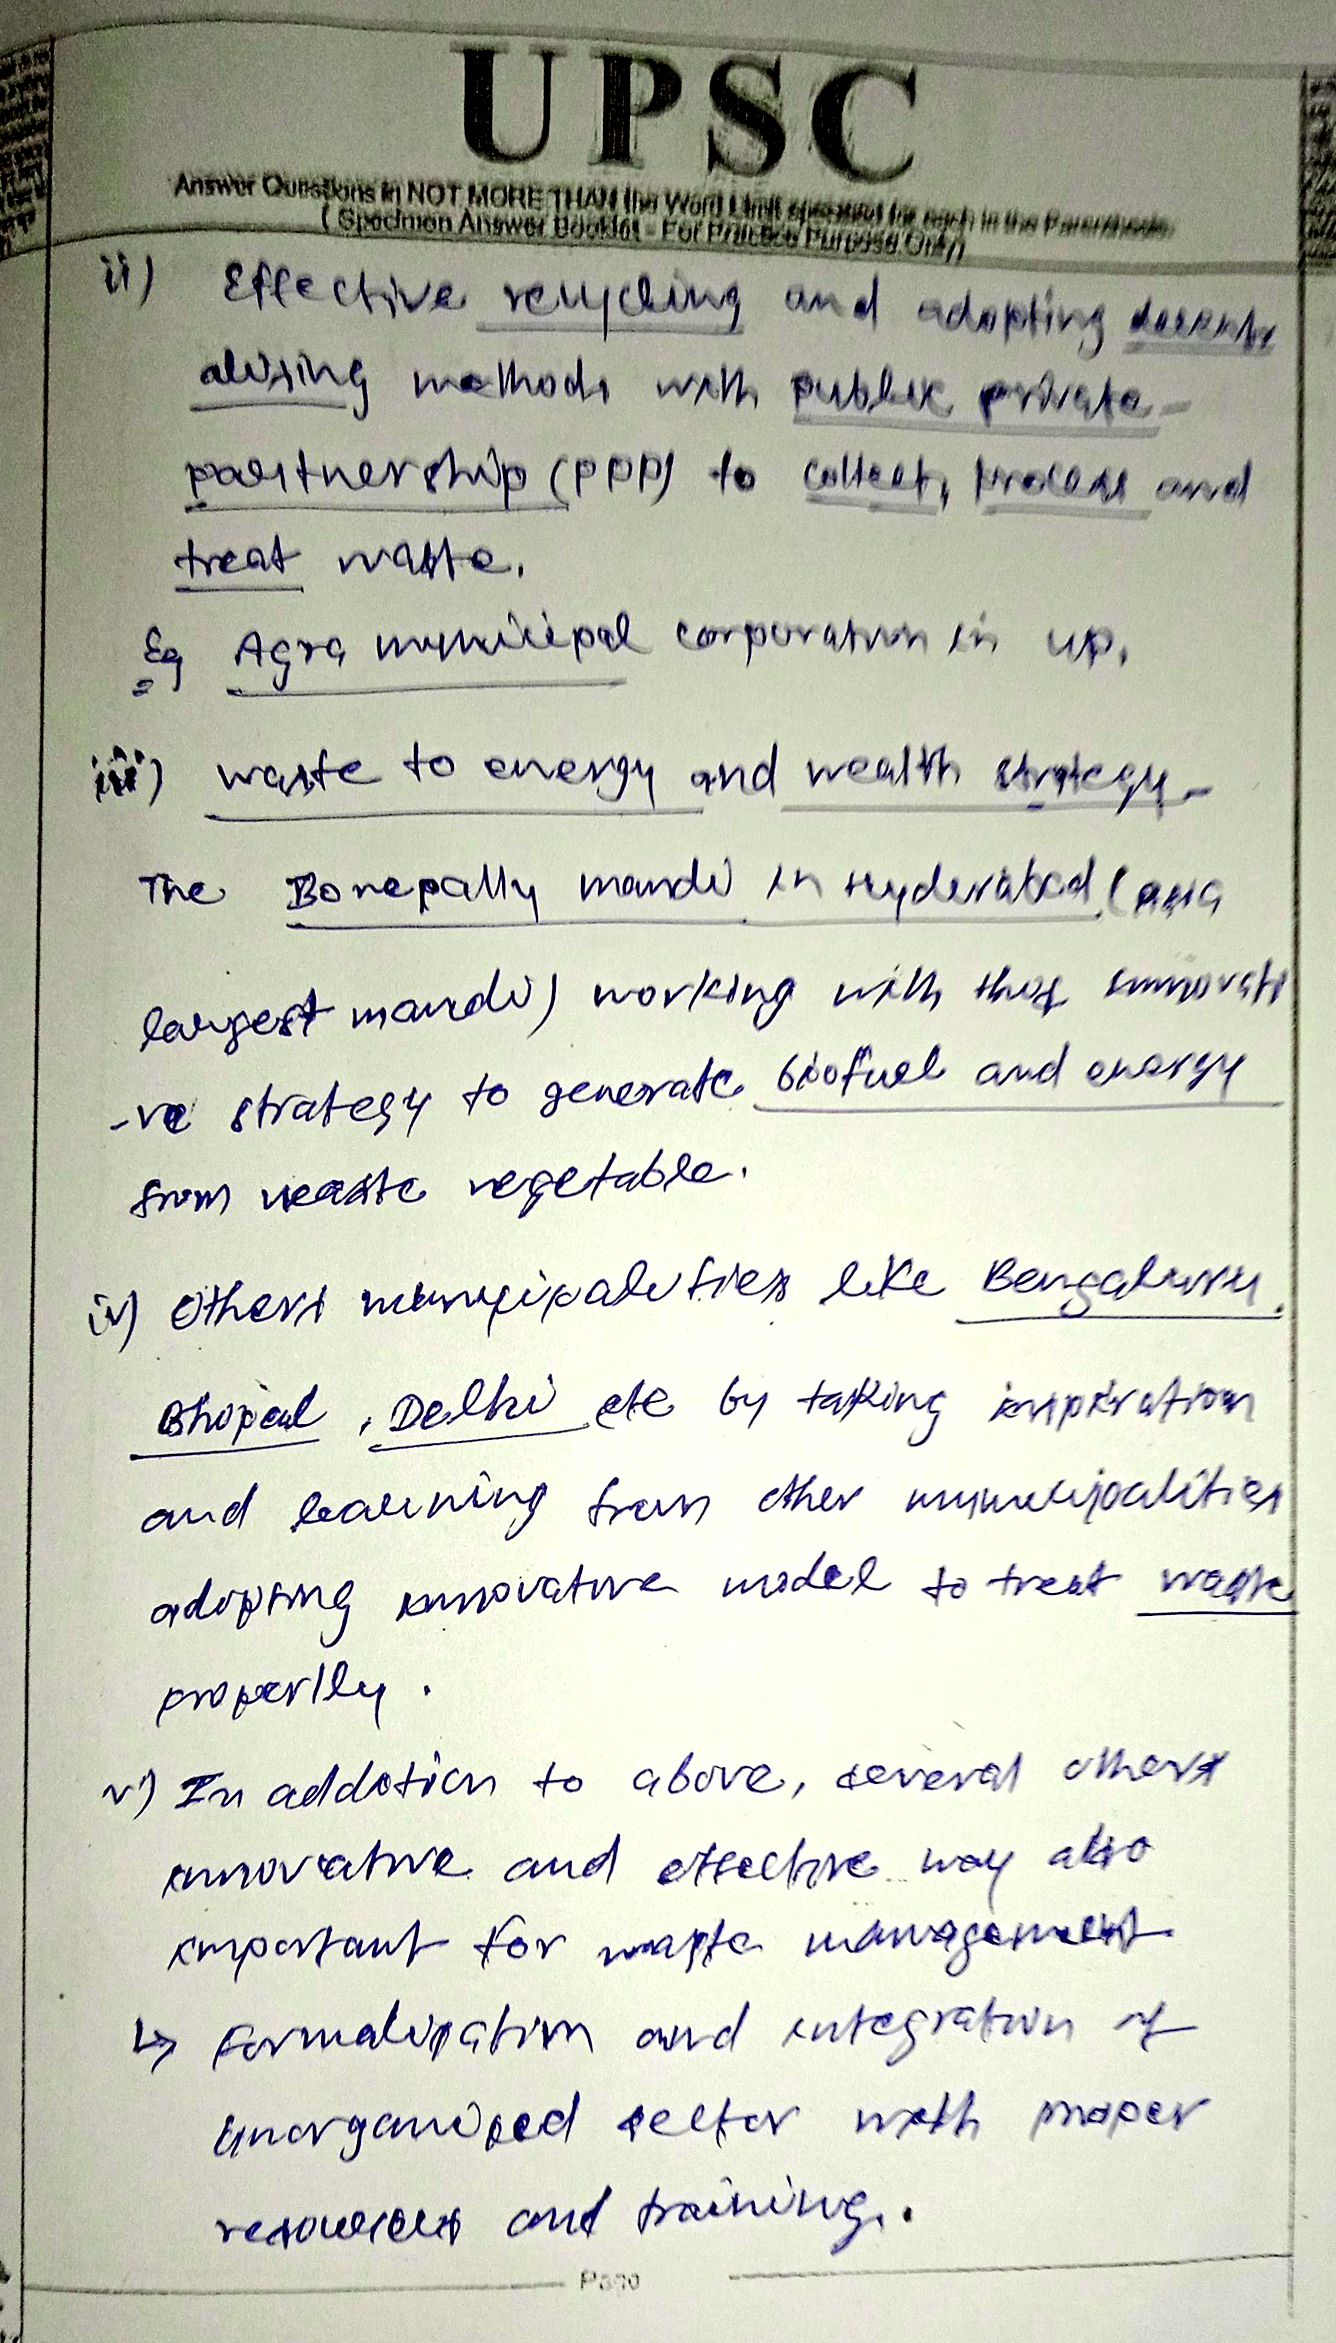 UPSC
Answer Questions in NOT MORE THAN the Word Limit specified for each in the Parenthesis.
( Specimen Answer Booklet - For Practice Purpose Only)
ii) Effective recycling and adopting decentr
alising methods with public private-
partnership (PPP) to collect, process and
treat waste.
Eg Agra municipal corporation in UP.
iii) waste to energy and wealth strategy-
The Bonepally mandi in Hyderabad (asia
largest mandi) working with this innovati
-ve strategy to generate biofuel and energy
from waste vegetable.
iv) Others municipalities like Bengaluru,
Bhopal, Delhi etc by taking inspiration
and learning from other municipalities
adopting innovative model to treat waste
properlly.
v) In addotion to above, several others
innovative and effective way also
important for waste management
↳ Formalisation and integration of
unorganised sector with proper
resources and training.
Page